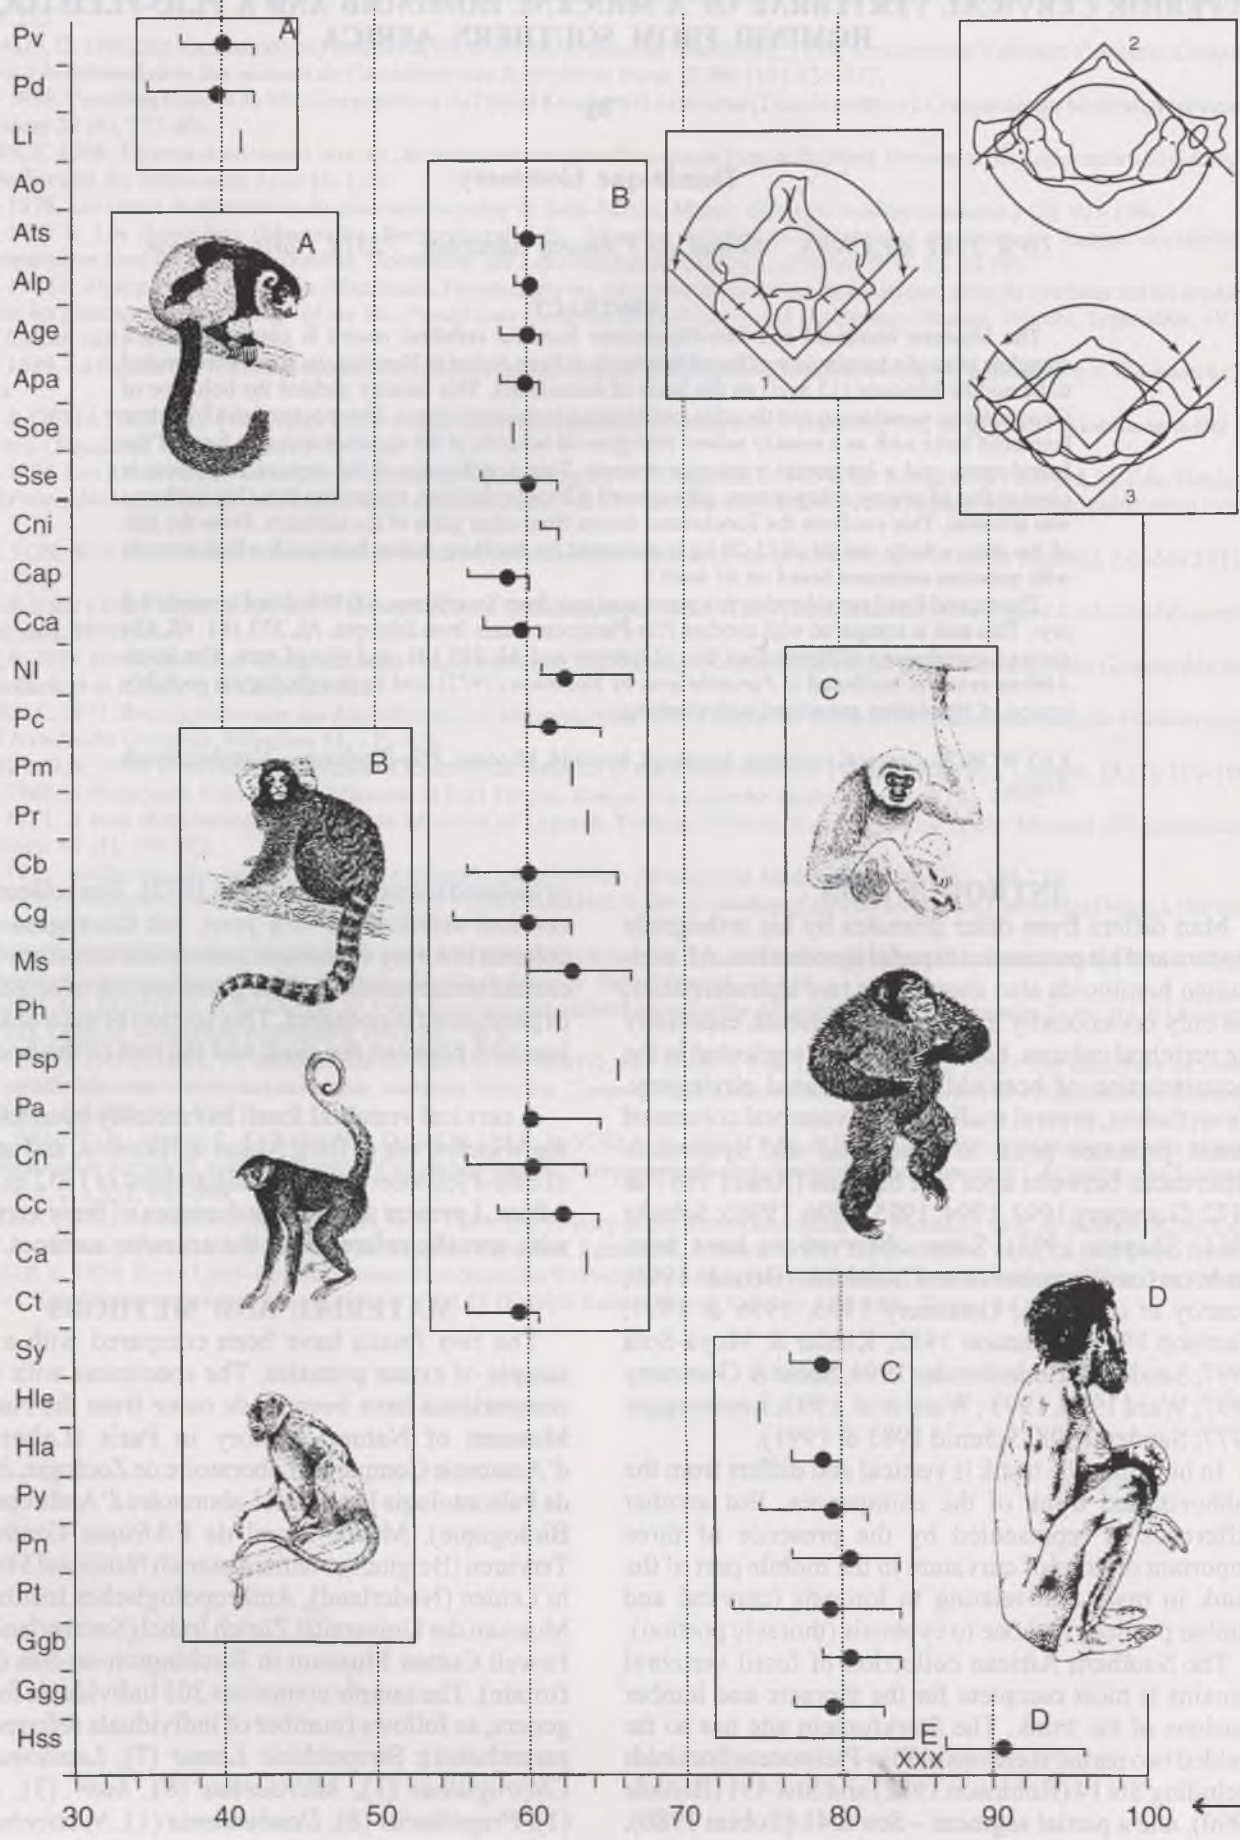 Pv
Pd
Li
Ao
Ats
Alp
Age
Apa
Soe
Sse
Cni
Cap
Cca
Nl
Pc
Pm
Pr
Cb
Cg
Ms
Ph
Psp
Pa
Cn
Cc
Ca
Ct
Sy
Hle
Hla
Py
Pn
Pt
Ggb
Ggg
Hss
A
A
B
B
1
2
3
C
C
D
D
E
XXX
30 40 50 60 70 80 90 100